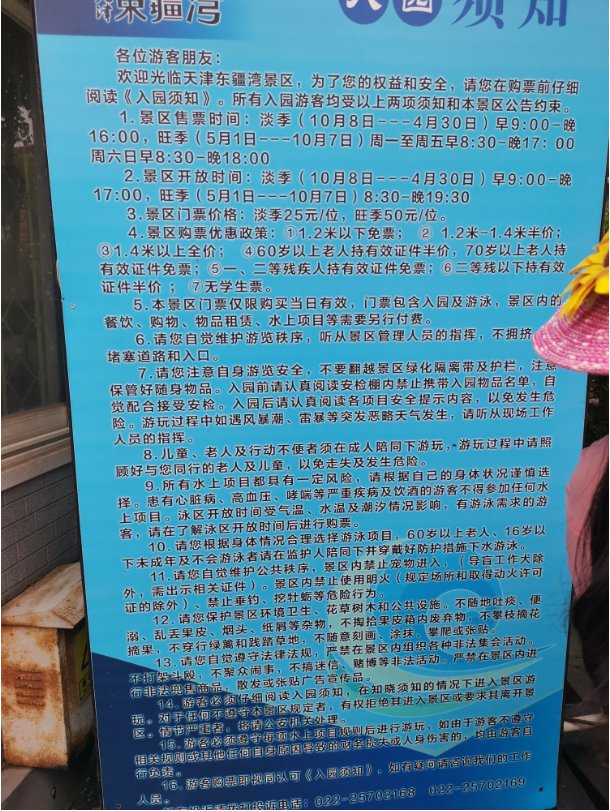 天津东疆湾 入园须知
各位游客朋友：
欢迎光临天津东疆湾景区，为了您的权益和安全，请您在购票前仔细
阅读《入园须知》。所有入园游客均受以上两项须知和本景区公告约束。
1.景区售票时间：淡季（10月8日---4月30日）早9:00-晚
16:00，旺季（5月1日---10月7日）周一至周五早8:30-晚17：00
周六日早8:30-晚18:00
2.景区开放时间：淡季（10月8日---4月30日）早9:00-晚
17:00，旺季（5月1日---10月7日）8:30-晚19:30
3.景区门票价格：淡季25元/位，旺季50元/位。
4.景区购票优惠政策：①1.2米以下免票； ② 1.2米-1.4米半价；
③1.4米以上全价； ④60岁以上老人持有效证件半价，70岁以上老人持
有效证件免票；⑤一、二等残疾人持有效证件免票；⑥二等残以下持有效
证件半价 ；⑦无学生票。
5.本景区门票仅限购买当日有效，门票包含入园及游泳，景区内的
餐饮、购物、物品租赁、水上项目等需要另行付费。
6.请您自觉维护游览秩序，听从景区管理人员的指挥，不拥挤
堵塞道路和入口。
7.请您注意自身游览安全，不要翻越景区绿化隔离带及护栏，注意
保管好随身物品。入园前请认真阅读安检棚内禁止携带入园物品名单，自
觉配合接受安检。入园后请认真阅读各项目安全提示内容，以免发生危
险。游玩过程中如遇风暴潮、雷暴等突发恶略天气发生，请听从现场工作
人员的指挥。
8.儿童、老人及行动不便者须在成人陪同下游玩，游玩过程中请照
顾好与您同行的老人及儿童，以免走失及发生危险。
9.所有水上项目都具有一定风险，请根据自己的身体状况谨慎选
择。患有心脏病、高血压、哮喘等严重疾病及饮酒的游客不得参加任何水
上项目。泳区开放时间受气温、水温及潮汐情况影响，有游泳需求的游
客，请在了解泳区开放时间后进行购票。
10.请您根据身体情况合理选择游泳项目，60岁以上老人、16岁以
下未成年及不会游泳者请在监护人陪同下并穿戴好防护措施下水游泳。
11.请您自觉维护公共秩序，景区内禁止宠物进入，（导盲工作犬除
外，需出示相关证件）。景区内禁止使用明火（规定场所和取得动火许可
证的除外）、禁止垂钓，挖牡蛎等危险行为。
12.请您保护景区环境卫生、花草树木和公共设施。不随地吐痰、便
溺、乱丢果皮、烟头、纸屑等杂物，不掏拾果皮箱内废弃物，不攀枝摘花
摘果，不穿行绿篱和践踏草地，不随意刻画、涂抹、攀爬或张贴。
13.请您自觉遵守法律法规，严禁在景区内组织各种非法集会活动。
不打架斗殴，不聚众闹事，不搞迷信、赌博等非法活动。严禁在景区内进
行非法兜售商品，散发或张贴广告宣传品。
14.游客必须仔细阅读入园须知，在知晓须知的情况下进入景区游
玩。对于任何不遵守本景区规定者，有权拒绝其进入景区或要求其离开景
区，情节严重者，将请公安机关处理。
15.游客必须遵守每项水上项目规则后进行游玩，如由于游客不遵守
相关规则或其他任何自身原因导致的财务损失或人身伤害的，均由游客自
行负责。
16.游客购票即视同认可《入园须知》，如有疑问请咨询我们的工作
人员。
投诉请拨打投诉电话：022-25702168 022-25702169